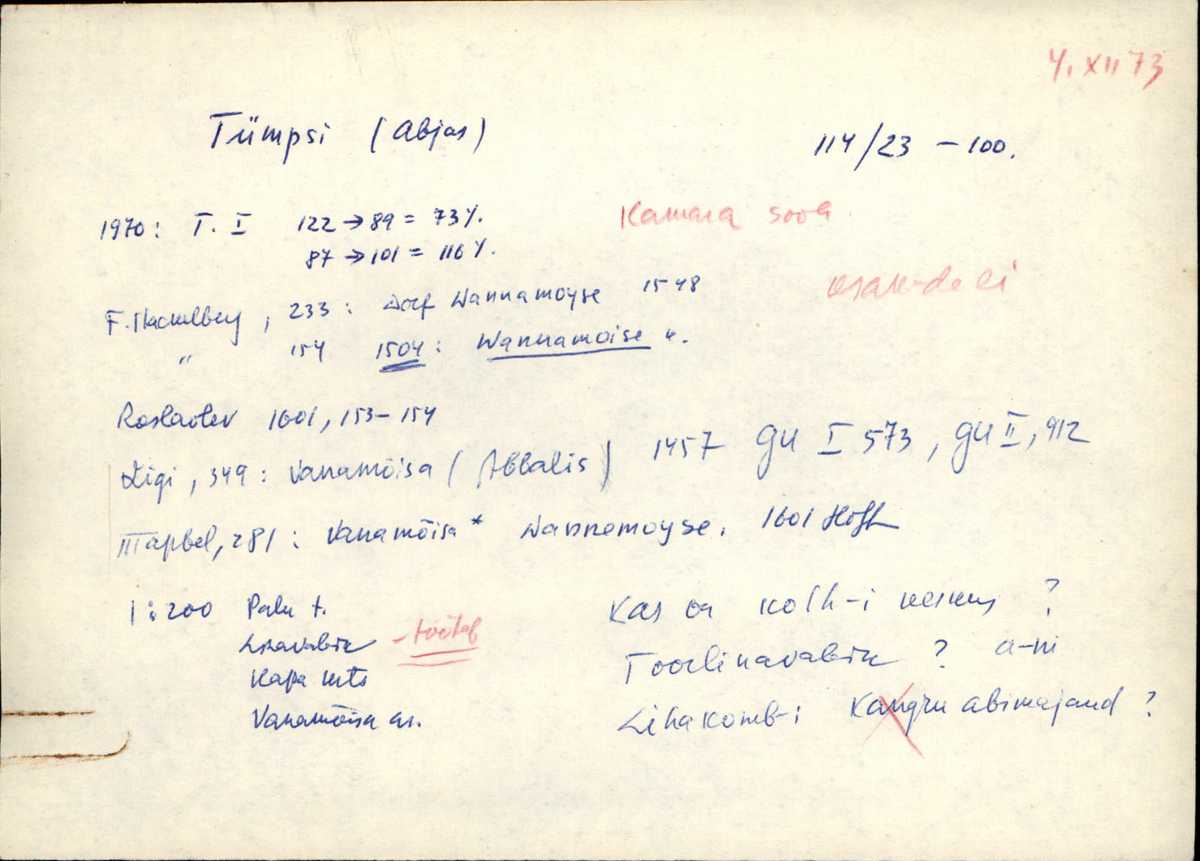 4. XII 73
Tümpsi (Abjas) 114/23 - 100.
1970: T. I 122 → 89 = 73%. Kamara sood
87 → 101 = 116%.
233: Dorf Wannamoyse 1548
" 154 1504: Wannamoise ".
Roslavlev 1601, 153-154
Ligi, 349: Vanamõisa (Abbalis) 1457 GU I 573, GU II, 912
281: Vanamõisa* Wannemoyse. 1601
1:200 Palu t. Kas on kolh-i keskus ?
- töötab
Kapa mts Toorlinavabrik ? a-ni
Vanamõisa as. Lihakomb-i Kangru abimajand ?